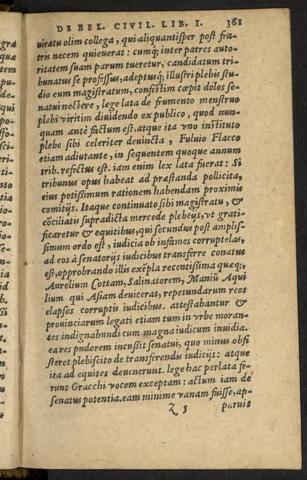 DE BEL. CIVIL. LIB. I. 361
uiratu olim collega, qui aliquantisper post fra-
tris necem quieuerat: cumq; inter patres auto-
ritatem suam parum tueretur, candidatum tri-
bunatus se professus, adeptusq; illustri plebis stu-
dio eum magistratum, confestim cœpit dolos se-
natui nectere, lege lata de frumento menstruo
plebi viritim diuidendo ex publico, quod nun-
quam antè factum est. atque ita vno instituto
plebe sibi celeriter deuincta, Fuluio Flacco
etiam adiutante, in sequentem quoque annum
trib. refectus est. iam enim lex lata fuerat: Si
tribunus opus habeat ad præstanda pollicita,
eius potissimum rationem habendam proximis
comitijs. Itaque continuato sibi magistratu, &
cōciliatis supradicta mercede plebeijs, vt grati-
ficaretur & equitibus, qui secundus post amplis-
simum ordo est, iudicia ob infames corruptelas,
ad eos à senatorijs iudicibus transferre conatus
est, opprobrando illis exēpla recentissima quæq;,
Aurelium Cottam, Salinatorem, Maniū Aqui
lium qui Asiam deuicerat, repetundarum reos
elapsos corruptis iudicibus. attestabantur &
prouinciarum legati etiam tum in vrbe moran-
tes indignabundi cum magna iudicum inuidia.
ea res pudorem incussit senatui, quo minus obsi
steret plebiscito de transferendis iuditijs: atque
ita ad equites deuenerunt. lege hac perlata fe-
runt Gracchi vocem exceptam: actum iam de
senatus potentia. eam minime vanam fuisse, ap-
Z 5 paruit